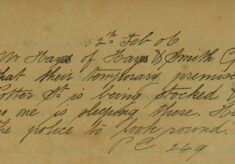 12th Feb 06
Mr Hayes of Hayes & Smith C
that their temporary premise
Potter St is being stocked &
as one is sleeping there. H
the police to look round.
P C 249